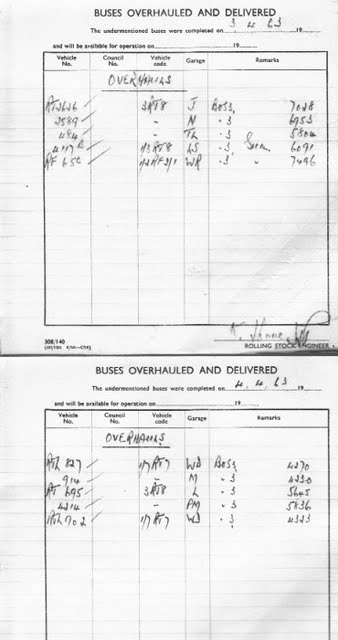 BUSES OVERHAULED AND DELIVERED
The undermentioned buses were completed on 3. 4. 63 19
and will be available for operation on 19
Vehicle No. Council No. Vehicle code Garage Remarks
OVERHAULS
RT 2626 3RT8 J BoS3 7028
2589 - N " 3 6953
484 - TL " 3 5804
4117 1/3 RT8 LS " 3 6091
RF 650 1/2 RF 2/1 WR " 3 " 7496
308/140
ROLLING STOCK ENGINEER
BUSES OVERHAULED AND DELIVERED
The undermentioned buses were completed on 4. 4. 63 19
and will be available for operation on 19
Vehicle No. Council No. Vehicle code Garage Remarks
OVERHAULS
827 1/7 RT7 WD BoS3 4270
914 - M " 3 4230
RT 695 3RT8 L " 3 5645
4214 - PM " 3 5836
702 1/7 RT7 WD " 3 4323